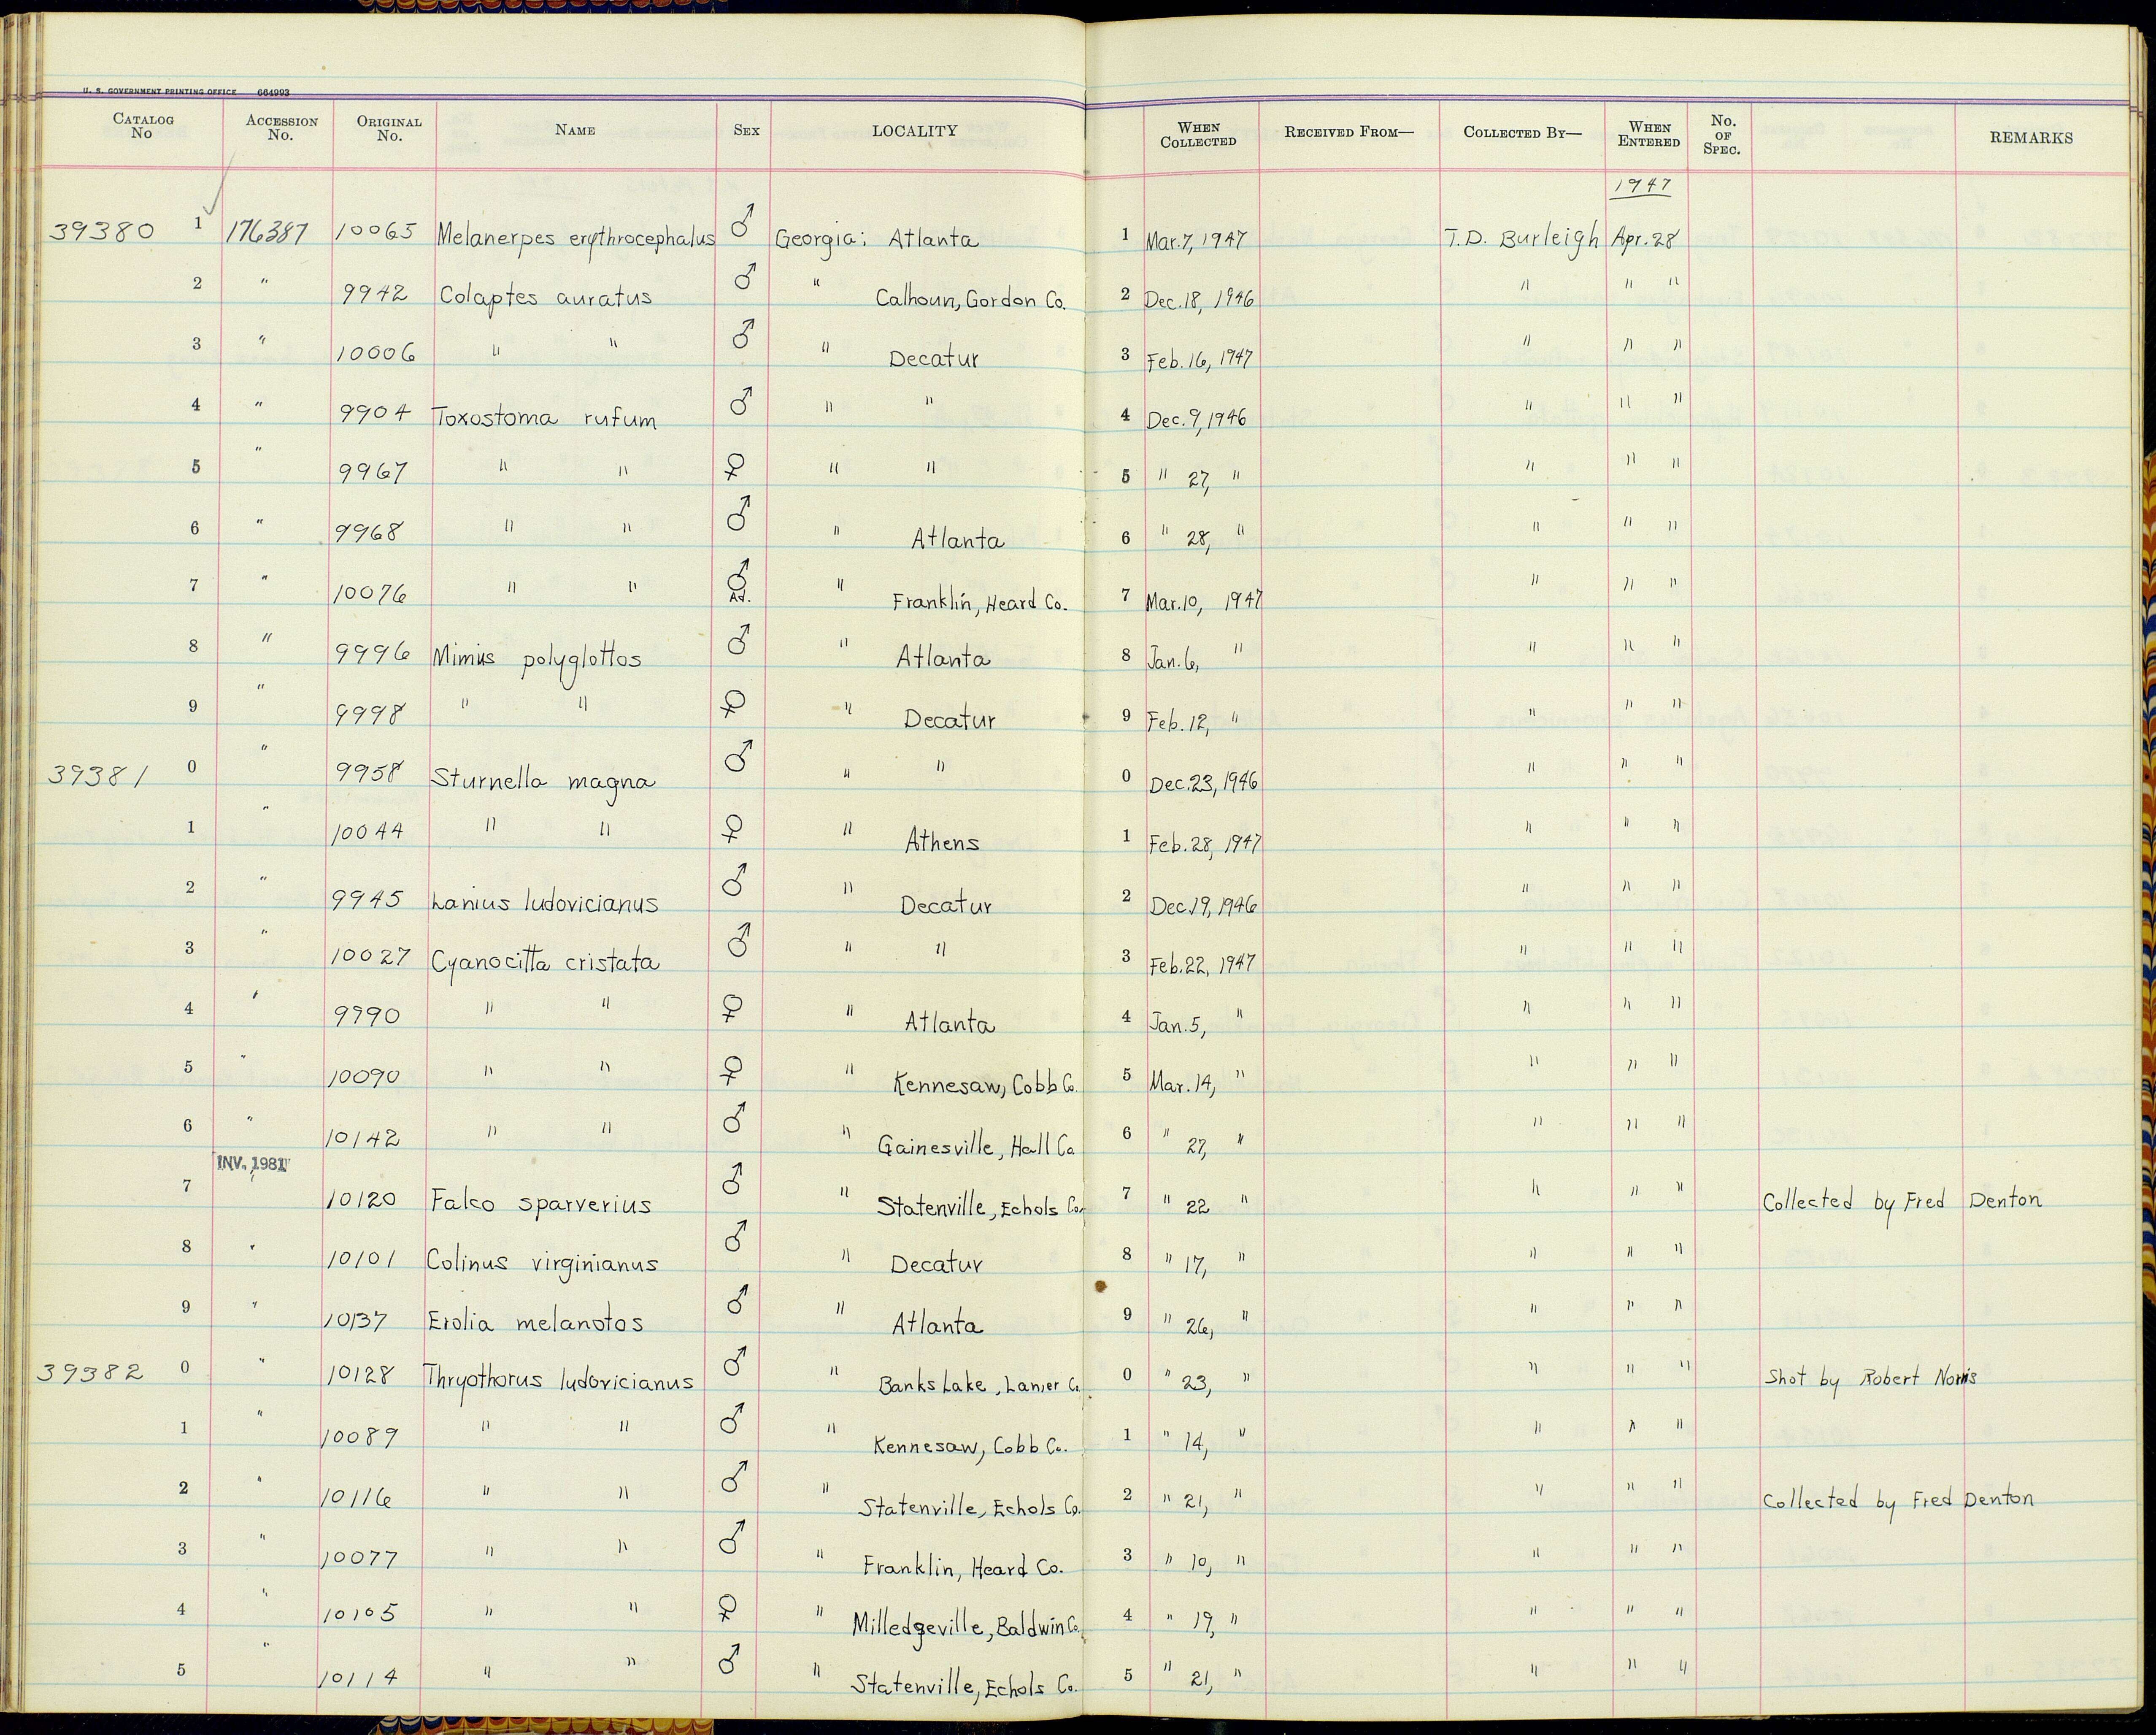 U. S. GOVERNMENT PRINTING OFFICE 664993
CATALOG No ACCESSION No. ORIGINAL No. NAME SEX LOCALITY WHEN COLLECTED RECEIVED FROM— COLLECTED BY— WHEN ENTERED No. OF SPEC. REMARKS
1947
39380 1 ✓ 176387 10065 Melanerpes erythrocephalus ♂ Georgia: Atlanta 1 Mar. 7, 1947 T.D. Burleigh Apr. 28
2 " 9942 Colaptes auratus ♂ " Calhoun, Gordon Co. 2 Dec. 18, 1946 " " "
3 " 10006 " " ♂ " Decatur 3 Feb. 16, 1947 " " "
4 " 9904 Toxostoma rufum ♂ " " 4 Dec. 9, 1946 " " "
5 " 9967 " " ♀ " " 5 " 27, " " " "
6 " 9968 " " ♂ " Atlanta 6 " 28, " " " "
7 " 10076 " " ♂ Ad. " Franklin, Heard Co. 7 Mar. 10, 1947 " " "
8 " 9996 Mimus polyglottos ♂ " Atlanta 8 Jan. 6, " " " "
9 " 9998 " " ♀ " Decatur 9 Feb. 12, " " " "
39381 0 " 9958 Sturnella magna ♂ " " 0 Dec. 23, 1946 " " "
1 " 10044 " " ♀ " Athens 1 Feb. 28, 1947 " " "
2 " 9945 Lanius ludovicianus ♂ " Decatur 2 Dec. 19, 1946 " " "
3 " 10027 Cyanocitta cristata ♂ " " 3 Feb. 22, 1947 " " "
4 " 9990 " " ♀ " Atlanta 4 Jan. 5, " " " "
5 " 10090 " " ♀ " Kennesaw, Cobb Co. 5 Mar. 14, " " " "
6 " 10142 " " ♂ " Gainesville, Hall Co 6 " 27, " " " "
INV. 1981
7 " 10120 Falco sparverius ♂ " Statenville, Echols Co. 7 " 22 " " " " Collected by Fred Denton
8 " 10101 Colinus virginianus ♂ " Decatur 8 " 17, " " " "
9 " 10137 Erolia melanotos ♂ " Atlanta 9 " 26, " " " "
39382 0 " 10128 Thryothorus ludovicianus ♂ " Banks Lake, Lanier Co. 0 " 23, " " " " Shot by Robert Norris
1 " 10089 " " ♂ " Kennesaw, Cobb Co. 1 " 14, " " " "
2 " 10116 " " ♂ " Statenville, Echols Co. 2 " 21, " " " " Collected by Fred Denton
3 " 10077 " " ♂ " Franklin, Heard Co. 3 " 10, " " " "
4 " 10105 " " ♀ " Milledgeville, Baldwin Co. 4 " 19, " " " "
5 " 10114 " " ♂ " Statenville, Echols Co. 5 " 21, " " " "